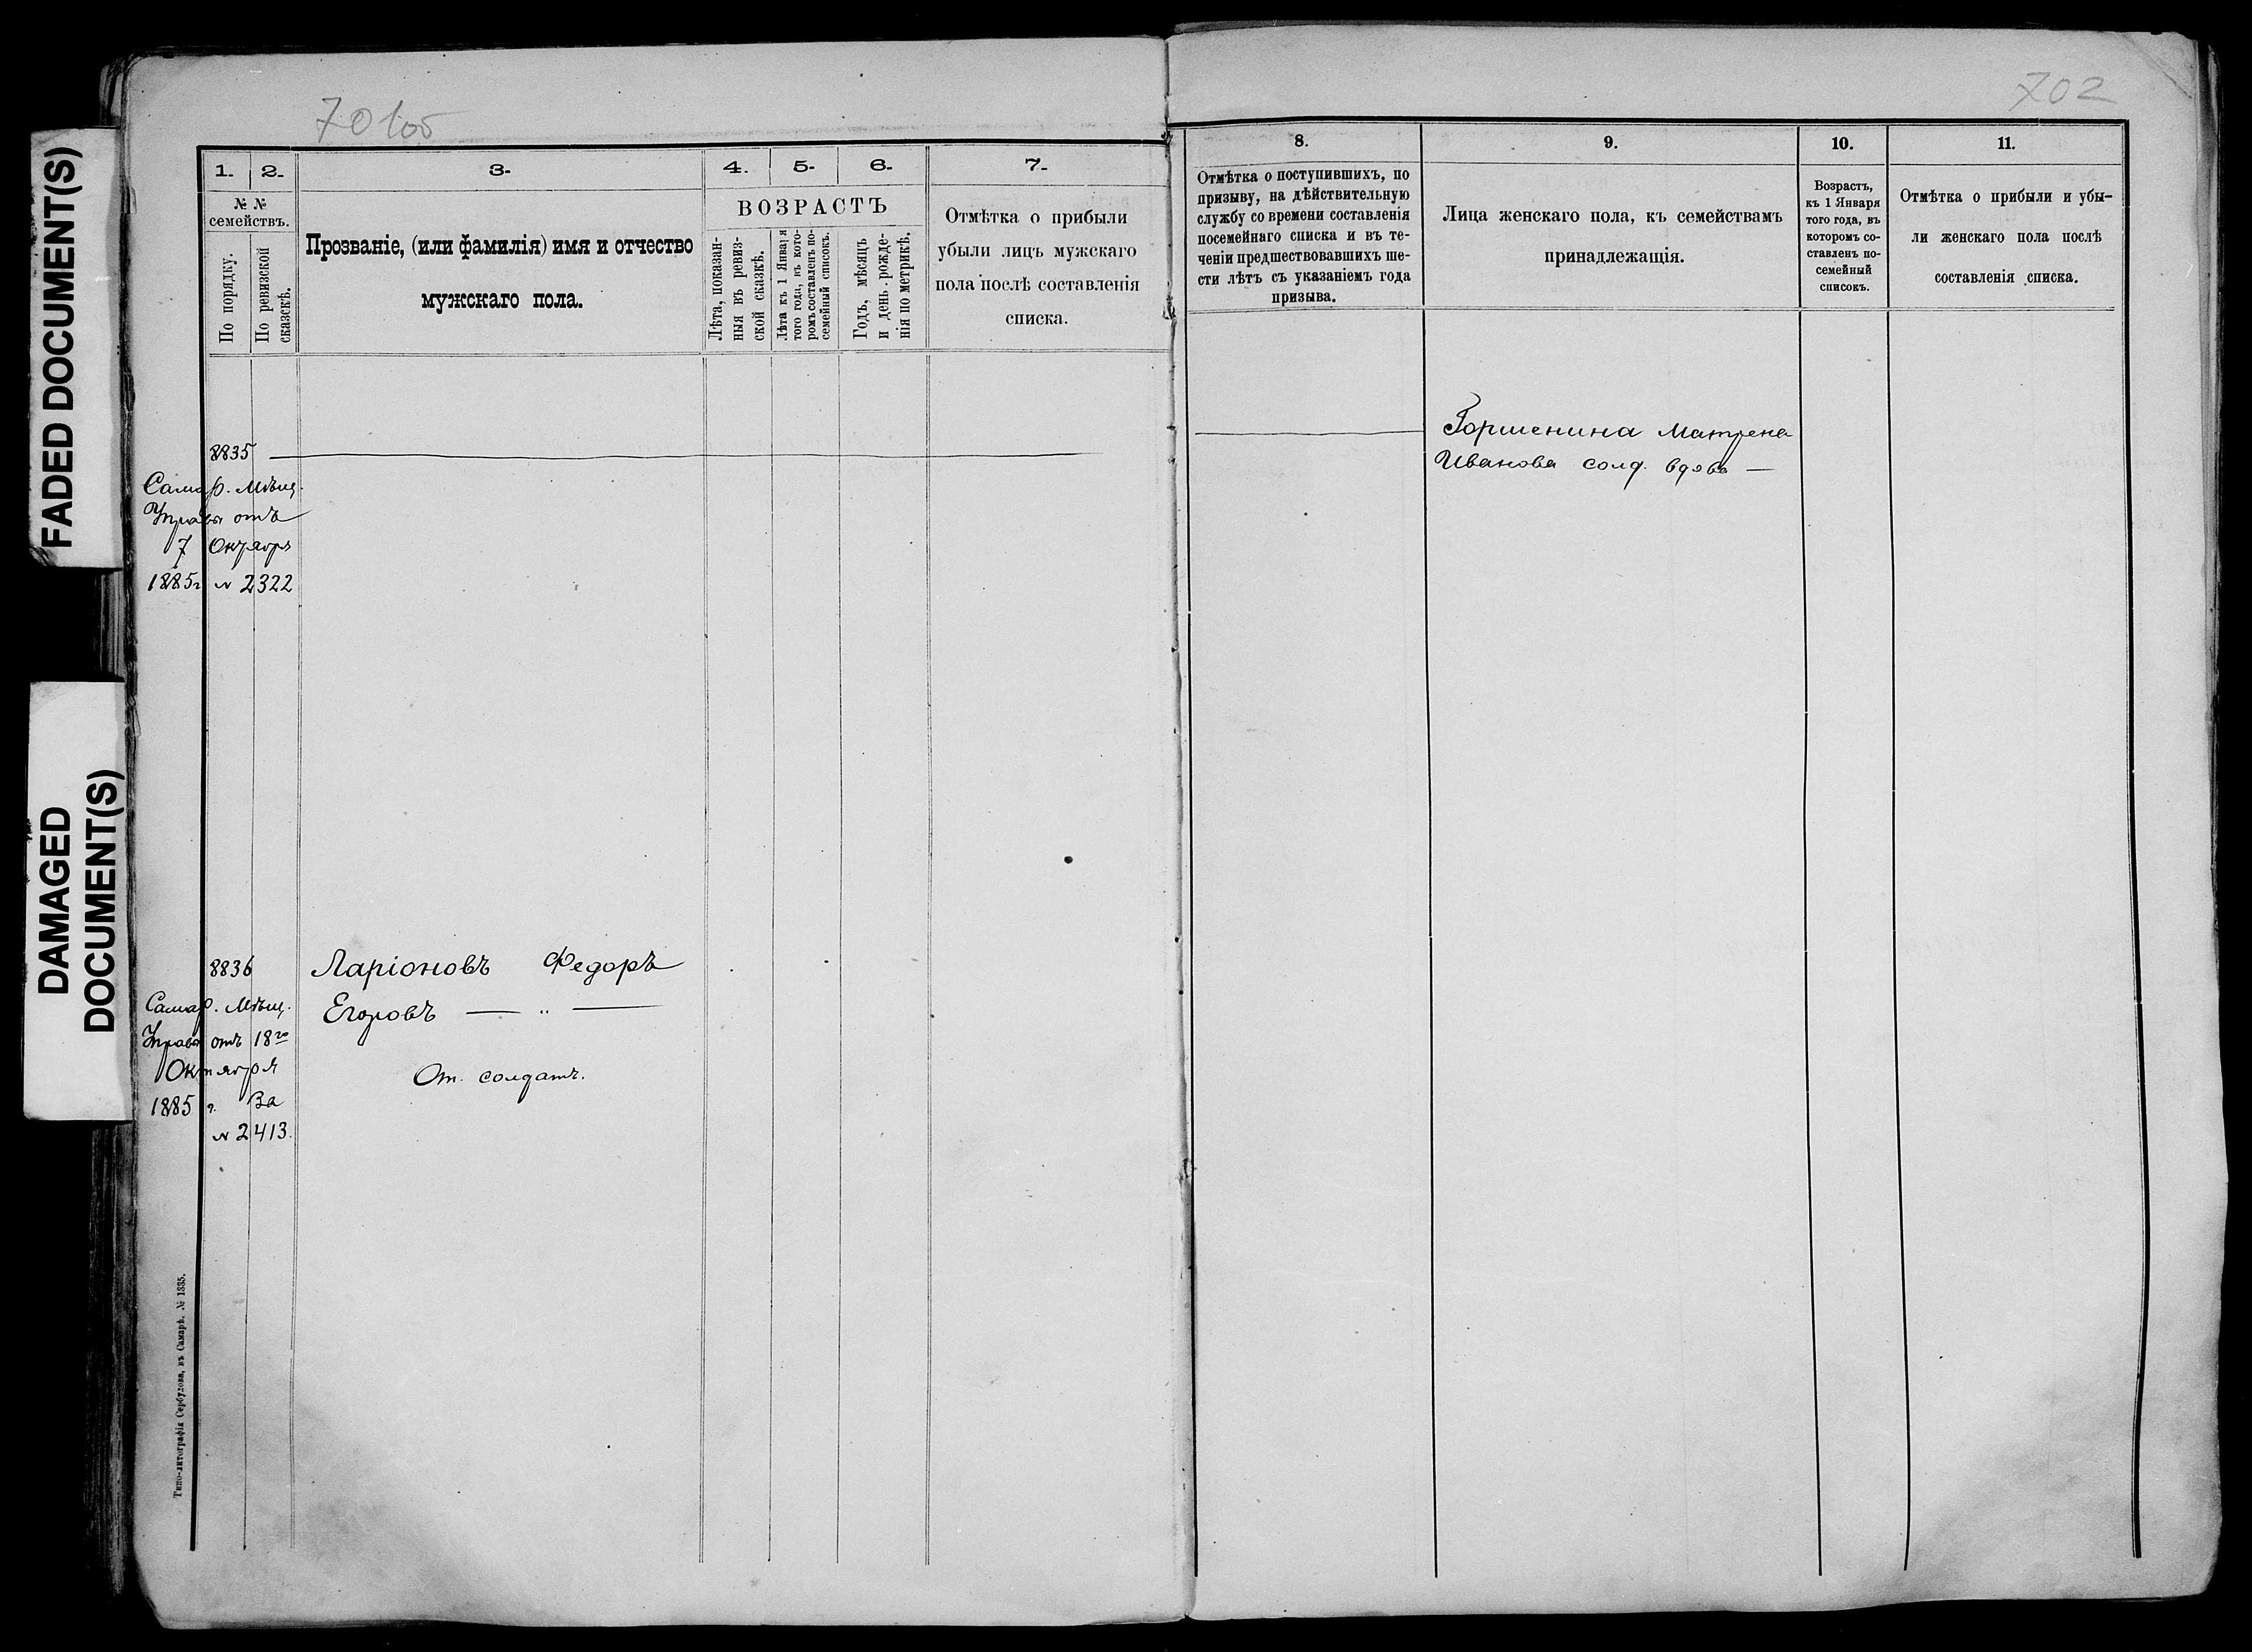 FADED DOCUMENT(S)
DAMAGED
DOCUMENT(S)
701об
1. 2.
№ №
семействъ.
По порядку.
По ревизской
сказкѣ.
3.
Прозваніе, (или фамилія) имя и отчество
мужскаго пола.
4. 5. 6.
ВОЗРАСТЪ
Лѣта, показан-
ныя въ ревиз-
ской сказкѣ.
Лѣта къ 1 Января
того года, въ кото-
ромъ составленъ по-
семейный списокъ.
Годъ, мѣсяцъ
и день рожде-
нія по метрикѣ.
7.
Отмѣтка о прибыли
убыли лицъ мужскаго
пола послѣ составленія
списка.
8835
Самар. Мѣщ.
Управы отъ
7 Октября
1885г № 2322
8836
Самар. Мѣщ.
Управы отъ 18го
Октября
1885 г. За
№ 2413.
Ларіоновъ Федоръ
Егоровъ — „ —
От. солдатъ.
Типо-литографія Сербулова, въ Самарѣ. № 1335.
702
8.
Отмѣтка о поступившихъ, по
призыву, на дѣйствительную
службу со времени составленія
посемейнаго списка и въ те-
ченіи предшествовавшихъ ше-
сти лѣтъ съ указаніемъ года
призыва.
9.
Лица женскаго пола, къ семействамъ
принадлежащія.
10.
Возрастъ,
къ 1 Января
того года, въ
которомъ со-
ставленъ по-
семейный
списокъ.
11.
Отмѣтка о прибыли и убы-
ли женскаго пола послѣ
составленія списка.
Горшенина Матрена
Иванова солд. вдова —